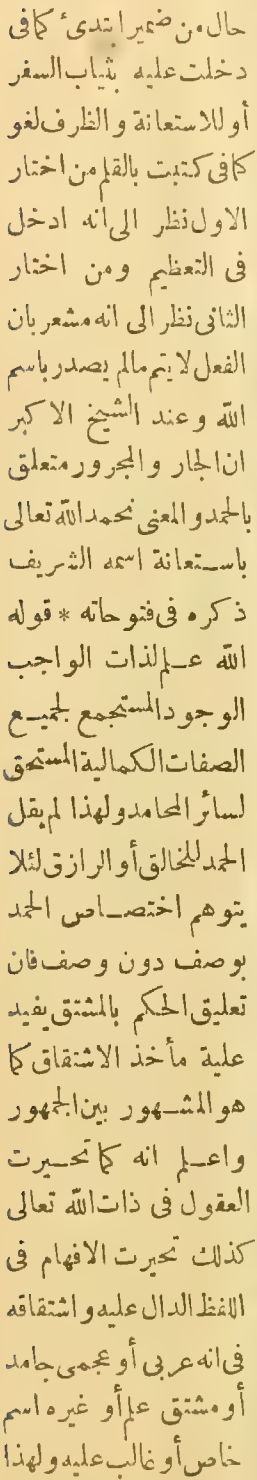 حال من ضمير ابتدئ كما فى
دخلت عليه بثياب السفر
أو للاستعانة والظرف لغو
كما فى كتبت بالقلم من اختار
الاول نظر الى انه ادخل
فى التعظيم ومن اختار
الثانى نظر الى انه مشعر بان
الفعل لا يتم مالم يصدر باسم
الله وعند الشيخ الاكبر
ان الجار والمجرور متعلق
بالحمد والمعنى نحمد الله تعالى
باستعانة اسمه الشريف
ذكره فى فتوحاته * قوله
الله علم لذات الواجب
الوجود المستجمع لجميع
الصفات الكمالية المستحق
لسائر المحامد ولهذا لم يقل
الحمد للخالق أو الرازق لئلا
يتوهم اختصاص الحمد
بوصف دون وصف فان
تعليق الحكم بالمشتق يفيد
علية مأخذ الاشتقاق كما
هو المشهور بين الجمهور
واعلم انه كما تحيرت
العقول فى ذات الله تعالى
كذلك تحيرت الافهام فى
اللفظ الدال عليه واشتقاقه
فى انه عربى أو عجمى جامد
أو مشتق علم أو غيره اسم
خاص أو غالب عليه ولهذا